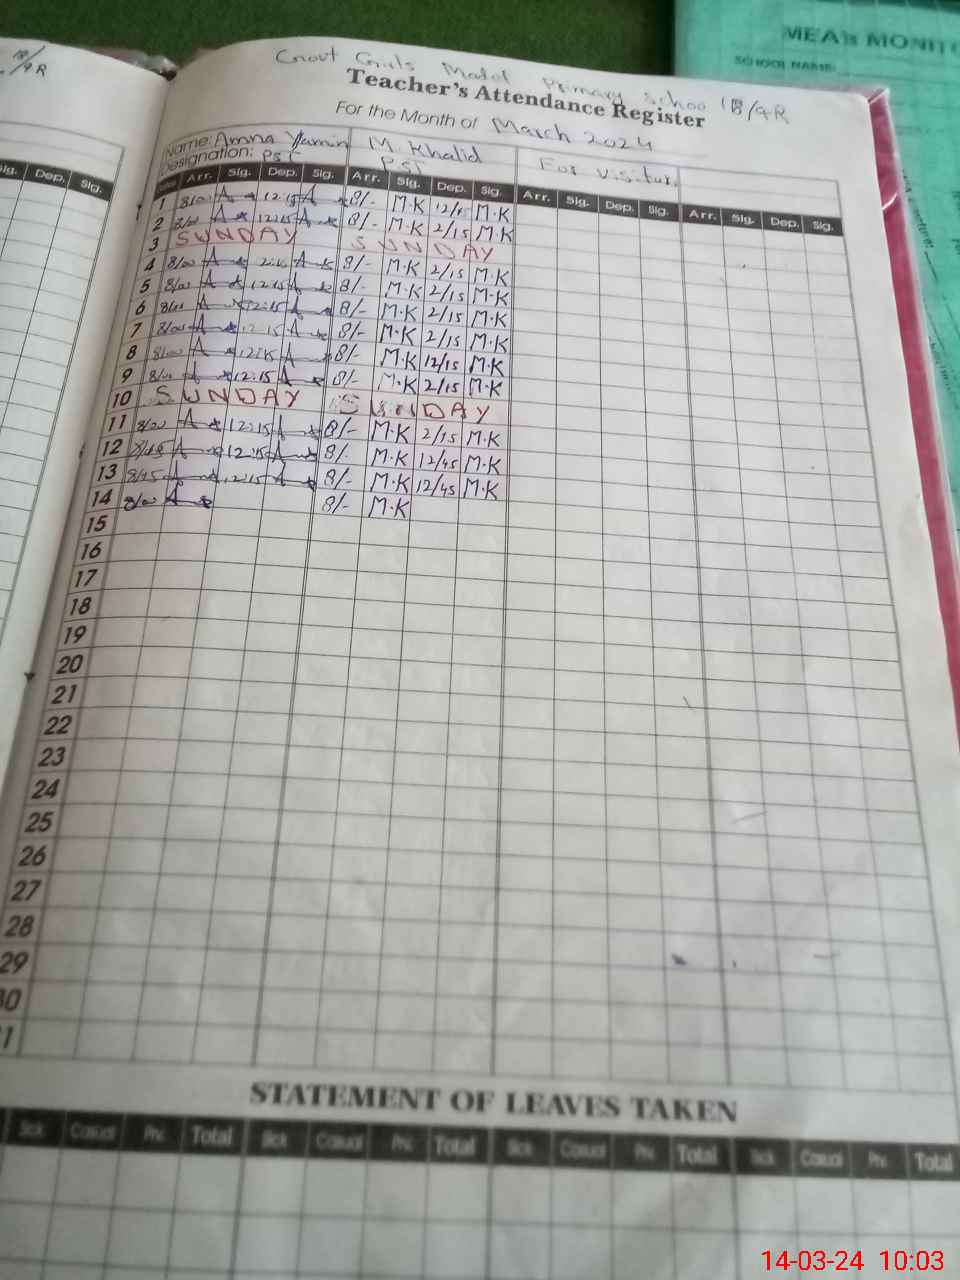 18/9R
MEA's MONITO
SCHOOL NAME:
Govt Girls Model Primary School 18/9R
Teacher's Attendance Register
For the Month of March 2024
Name: Amna Yamin M. Khalid For Visitor.
Designation: PST PST
Sig. Dep. Sig. Arr. Sig. Dep. Sig. Arr. Sig. Dep. Sig. Arr. Sig. Dep. Sig. Arr. Sig. Dep. Sig.
1 8/00 A 12:15 A 8/- M.K M.K
2 8/00 A 12:15 A 8/- M.K 2/15 M.K
3 SUNDAY SUNDAY
4 8/00 A A 8/- M.K 2/15 M.K
5 8/00 A 12:15 A 8/- M.K 2/15 M.K
6 8/00 A 12:15 A 8/- M.K 2/15 M.K
7 8/00 A 12:15 A 8/- M.K 2/15 M.K
8 8/00 A 12:15 A 8/- M.K 12/15 M.K
9 8/00 A 12:15 A 8/- M.K 2/15 M.K
10 SUNDAY SUNDAY
11 8/00 A 12:15 A 8/- M.K 2/15 M.K
12 A 12:15 A 8/- M.K 12/45 M.K
13 8/45 A 12:15 A 8/- M.K 12/45 M.K
14 8/00 A 8/- M.K
15
16
17
18
19
20
21
22
23
24
25
26
27
28
29
30
31
STATEMENT OF LEAVES TAKEN
Sick Casual Priv. Total Sick Casual Priv. Total Sick Casual Priv. Total Sick Casual Priv. Total
14-03-24 10:03